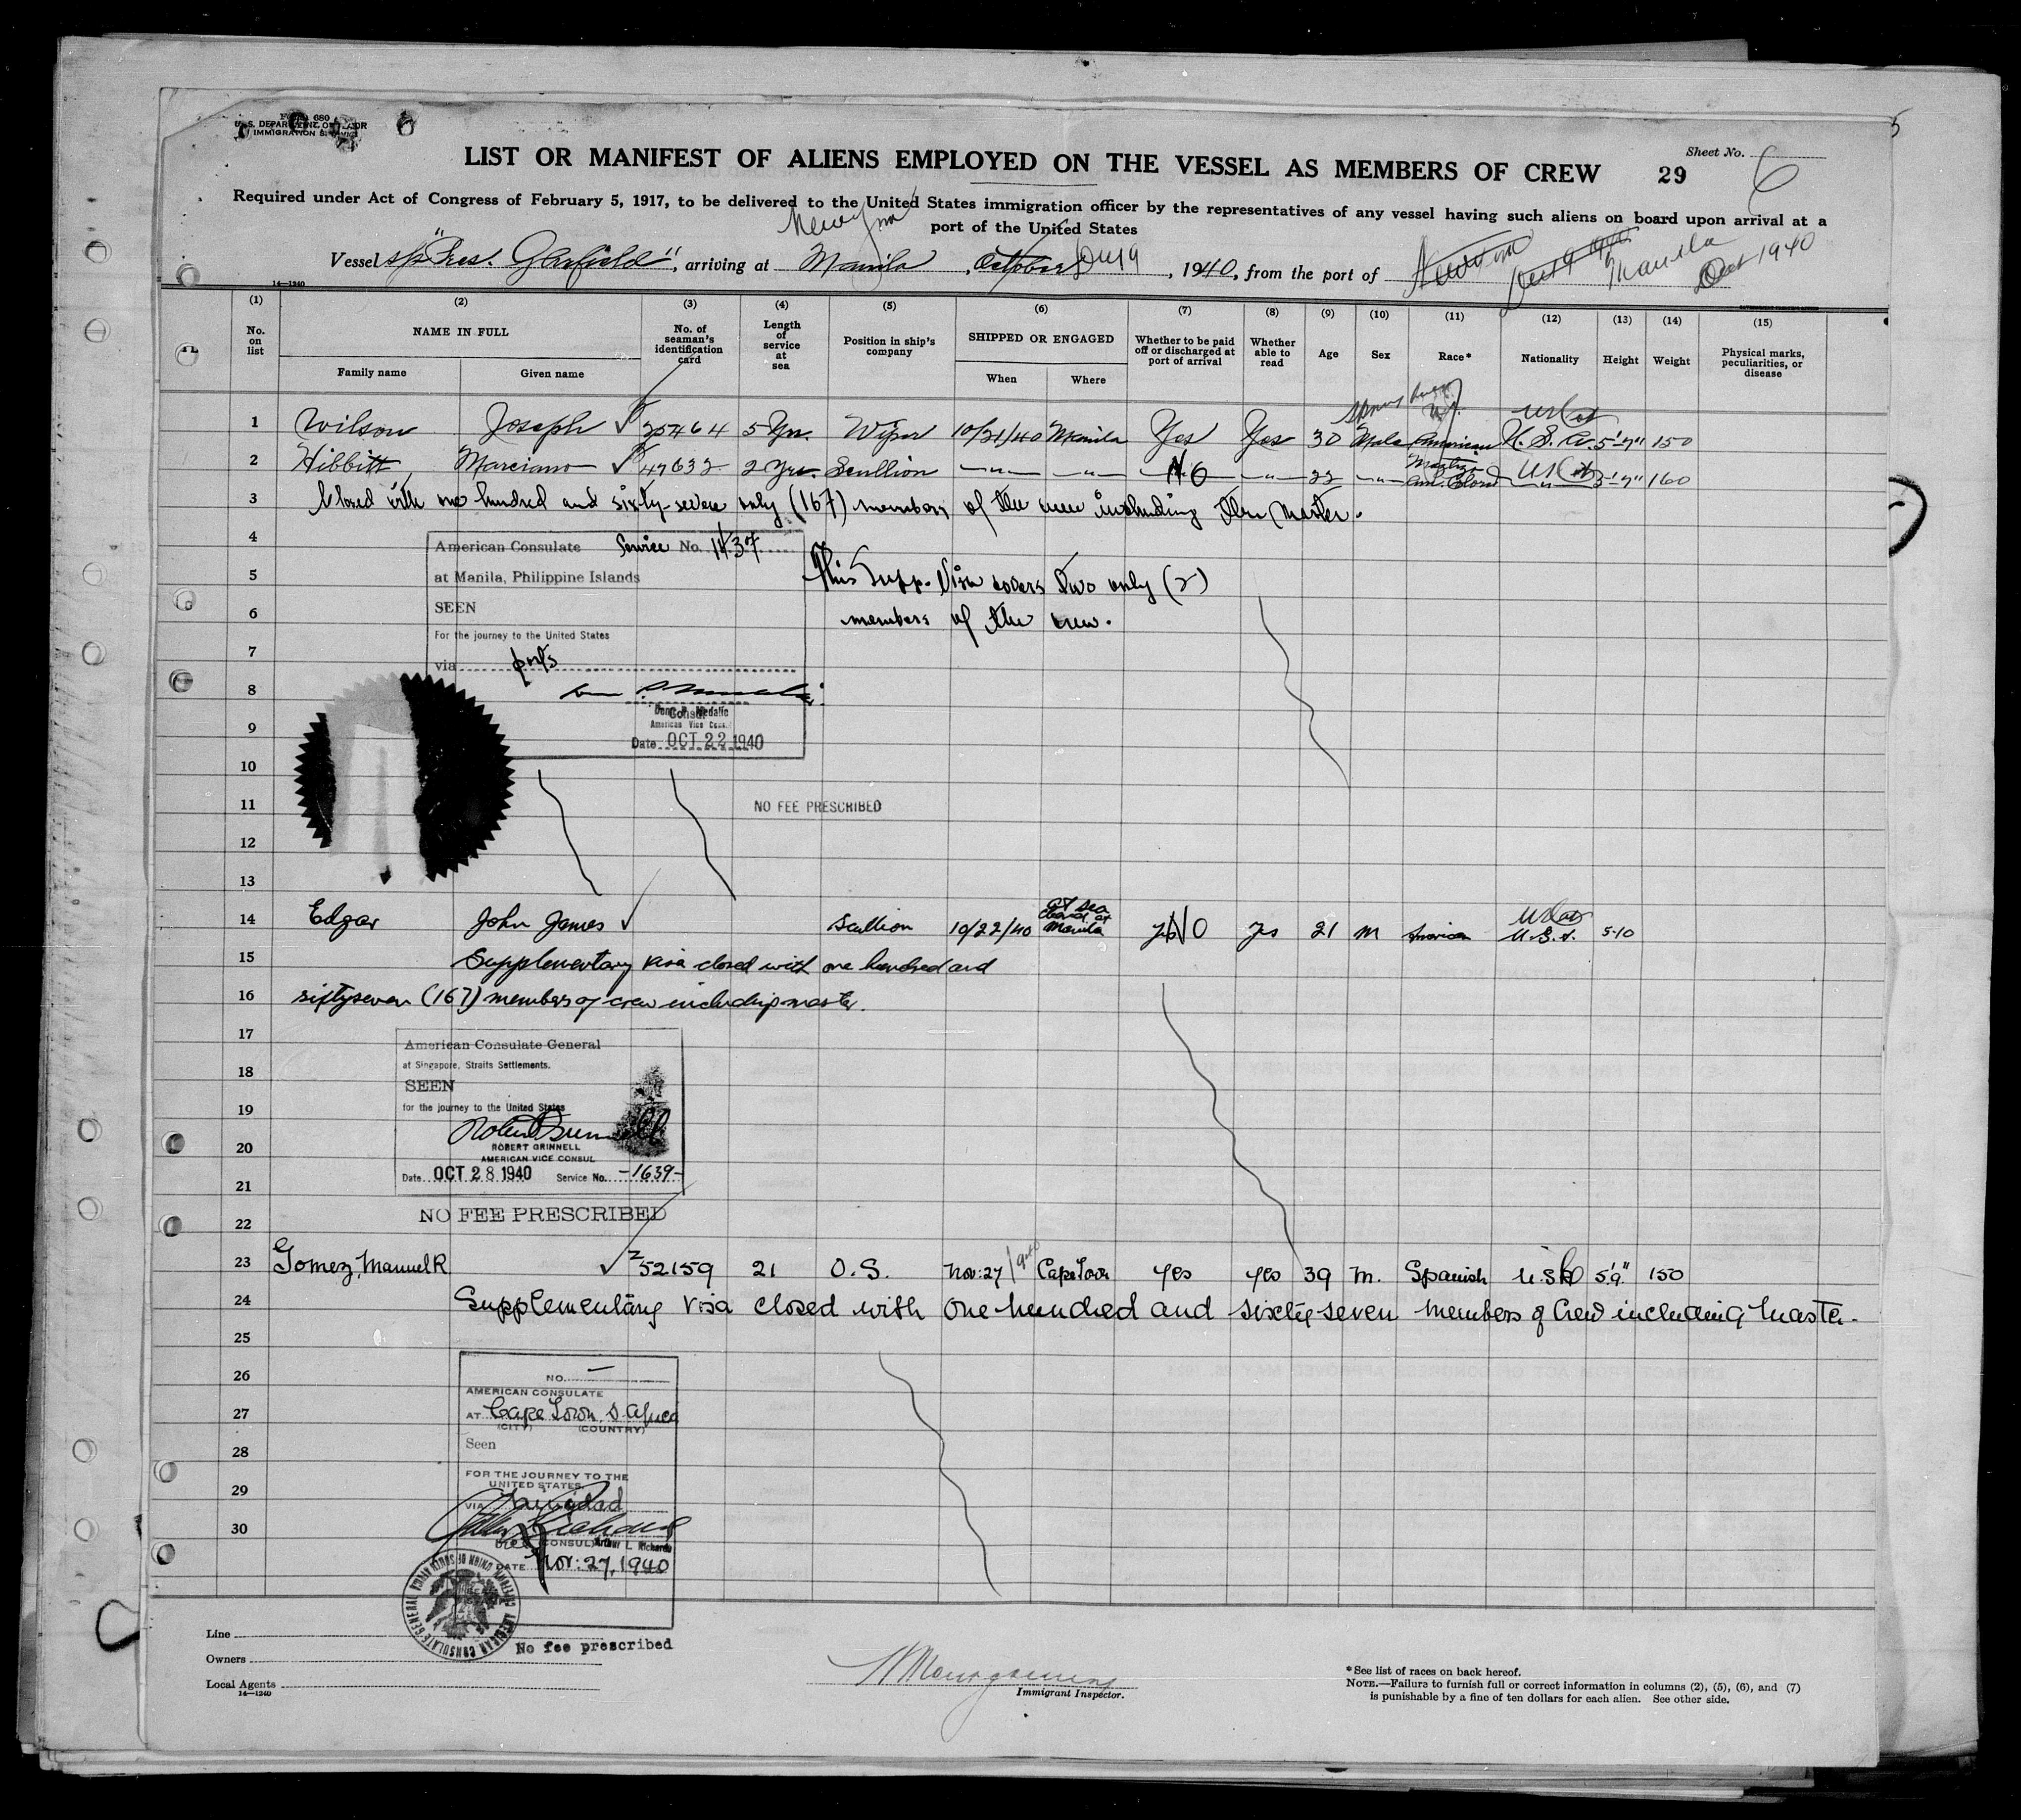 U.S. DEPARTMENT OF LABOR
IMMIGRATION SERVICE
LIST OR MANIFEST OF ALIENS EMPLOYED ON THE VESSEL AS MEMBERS OF CREW 29
Sheet No. 6
Required under Act of Congress of February 5, 1917, to be delivered to the United States immigration officer by the representatives of any vessel having such aliens on board upon arrival at a
port of the United States
Vessel "Pres. Garfield", arriving at Manila, October, 1940, from the port of Manila Oct 1940
14—1240
(1) (2) (3) (4) (5) (6) (7) (8) (9) (10) (11) (12) (13) (14) (15)
No. on list NAME IN FULL No. of seaman's identification card Length of service at sea Position in ship's company SHIPPED OR ENGAGED Whether to be paid off or discharged at port of arrival Whether able to read Age Sex Race* Nationality Height Weight Physical marks, peculiarities, or disease
Family name Given name When Where
1 Wilson Joseph 5 Yrs. Wiper 10/21/40 Manila Yes Yes 30 Male American U.S.A. 5'-7" 150
2 Hibbitt, Marciano 47632 2 Yrs. Scullion —"— —"— No —"— 22 —"— 160
3 Closed with one hundred and sixty-seven only (167) members of the crew including the Master.
4 American Consulate Service No. 1437
5 at Manila, Philippine Islands This Supp. Visa covers two only (2)
6 SEEN members of the crew.
For the journey to the United States
7 via ports
8
American Vice Consul
9 Date OCT 22 1940
10
11 NO FEE PRESCRIBED
12
13
14 Edgar John James Scullion 10/22/40 at sea Manila No yes 21 M American U.S.A. 5-10
15 Supplementary visa closed with one hundred and
16 sixtyseven (167) members of crew including master.
17 American Consulate General
at Singapore, Straits Settlements.
18 SEEN
19 for the journey to the United States
20 ROBERT GRINNELL
AMERICAN VICE CONSUL
21 Date OCT 28 1940 Service No. -1639-
22 NO FEE PRESCRIBED
23 Gomez, Manuel R 52159 21 O.S. Nov: 27 1940 Cape Town yes yes 39 M. Spanish 5'9" 150
24 Supplementary visa closed with one hundred and sixty seven members of Crew including Master.
25
26 NO. —
AMERICAN CONSULATE
27 AT Cape Town S. Africa
(CITY) (COUNTRY)
28 Seen
FOR THE JOURNEY TO THE
29 UNITED STATES
VIA Trinidad
30 CONSUL Arthur L. Richards
DATE Nov: 27, 1940
No fee prescribed
Line
Owners
Local Agents
14—1240
Immigrant Inspector.
*See list of races on back hereof.
NOTE.—Failure to furnish full or correct information in columns (2), (5), (6), and (7)
is punishable by a fine of ten dollars for each alien. See other side.